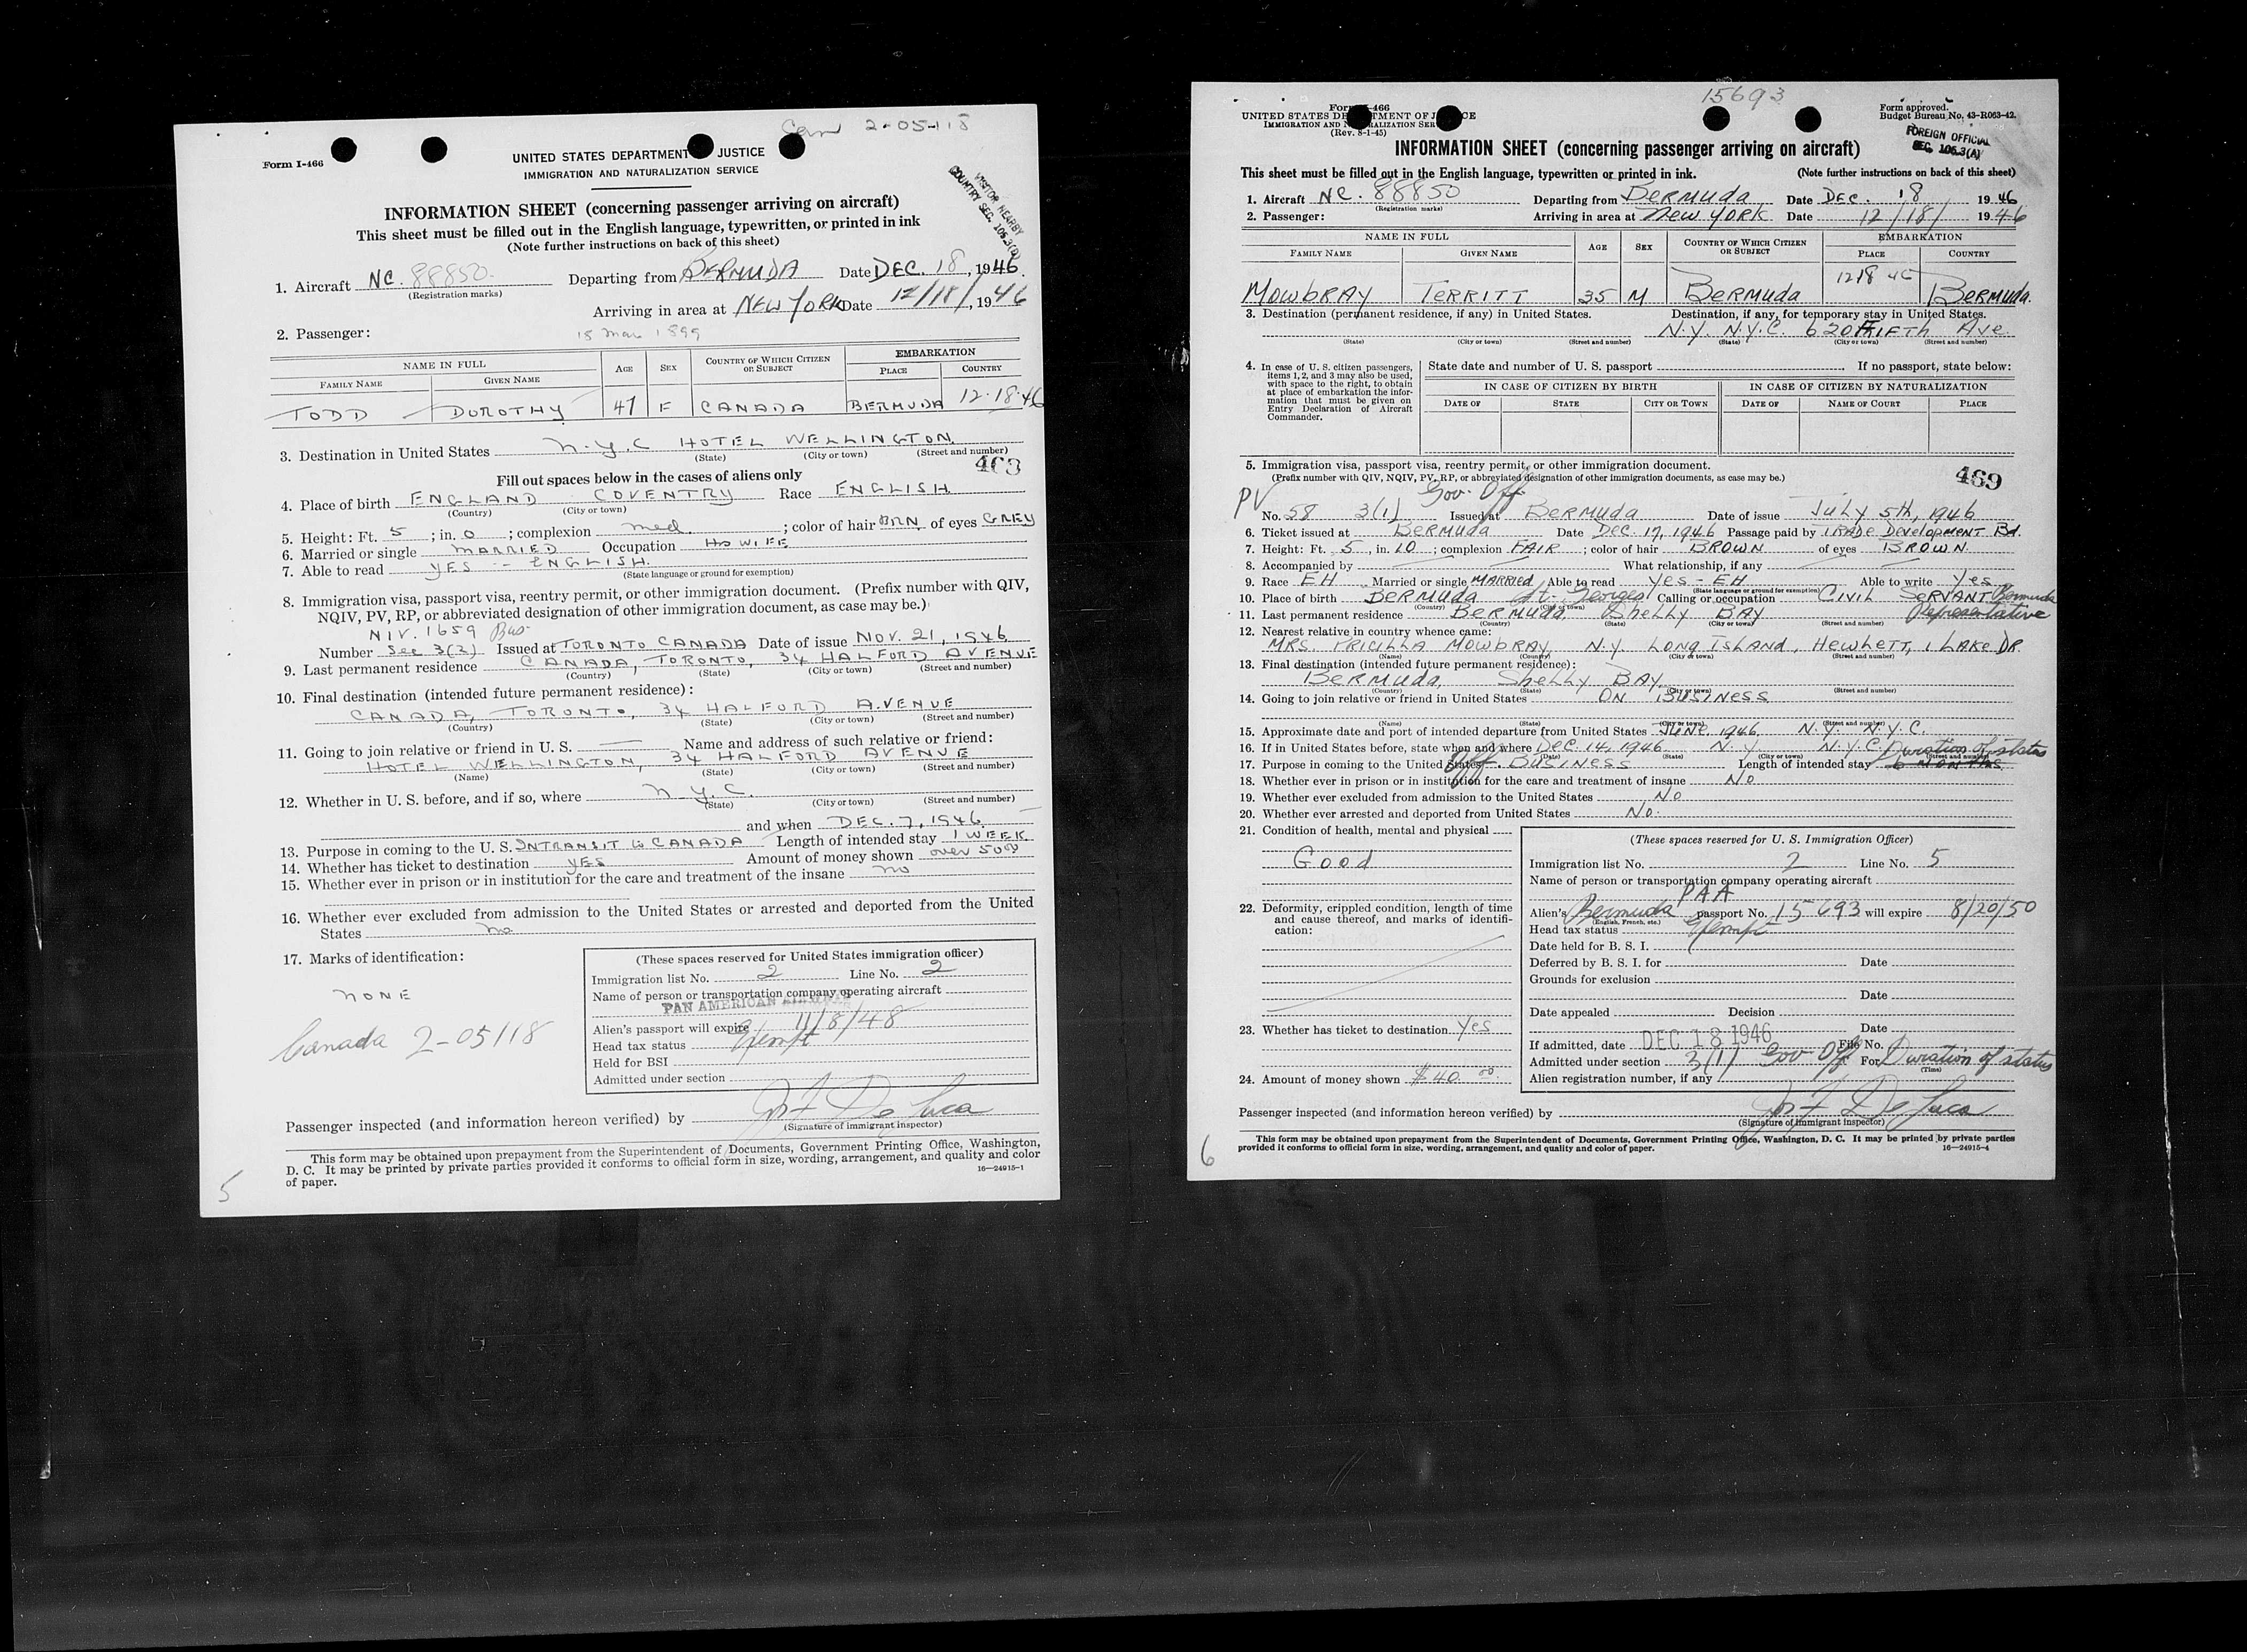 Can 2-05118
Form I-466
UNITED STATES DEPARTMENT JUSTICE
IMMIGRATION AND NATURALIZATION SERVICE
VISITOR NEARBY
COUNTRY SEC. 105.3(D)
INFORMATION SHEET (concerning passenger arriving on aircraft)
This sheet must be filled out in the English language, typewritten, or printed in ink
(Note further instructions on back of this sheet)
1. Aircraft NC. 88850 Departing from BERMUDA Date DEC. 18, 1946.
(Registration marks)
Arriving in area at NEW YORK Date 12/18/, 1946
2. Passenger: 18 Mar 1899
NAME IN FULL AGE SEX COUNTRY OF WHICH CITIZEN OR SUBJECT EMBARKATION
FAMILY NAME GIVEN NAME PLACE COUNTRY
TODD DOROTHY 47 F CANADA BERMUDA 12.18.46
3. Destination in United States N.Y.C HOTEL WELLINGTON
(State) (City or town) (Street and number)
463
Fill out spaces below in the cases of aliens only
4. Place of birth ENGLAND COVENTRY Race ENGLISH
(Country) (City or town)
5. Height: Ft. 5; in. 0; complexion med.; color of hair BRN of eyes GREY
6. Married or single MARRIED Occupation HOWIFE
7. Able to read YES - ENGLISH.
(State language or ground for exemption)
8. Immigration visa, passport visa, reentry permit, or other immigration document. (Prefix number with QIV,
NQIV, PV, RP, or abbreviated designation of other immigration document, as case may be.)
NIV. 1659 Bus
Number Sec 3(2) Issued at TORONTO CANADA Date of issue NOV. 21, 1946
9. Last permanent residence CANADA, TORONTO, 34 HALFORD AVENUE
(Country) (State) (City or town) (Street and number)
10. Final destination (intended future permanent residence):
CANADA, TORONTO, 34 HALFORD AVENUE
(Country) (State) (City or town) (Street and number)
11. Going to join relative or friend in U. S. Name and address of such relative or friend:
HOTEL WELLINGTON, 34 HALFORD AVENUE
(Name) (State) (City or town) (Street and number)
12. Whether in U. S. before, and if so, where N.Y.C.
(State) (City or town) (Street and number)
and when DEC. 7, 1946
13. Purpose in coming to the U. S. INTRANSIT to CANADA Length of intended stay 1 WEEK
14. Whether has ticket to destination YES Amount of money shown over 50
15. Whether ever in prison or in institution for the care and treatment of the insane no
16. Whether ever excluded from admission to the United States or arrested and deported from the United
States no
17. Marks of identification:
NONE
Canada 2-05118
(These spaces reserved for United States immigration officer)
Immigration list No. 2 Line No. 2
Name of person or transportation company operating aircraft
PAN AMERICAN AIRWAYS
Alien's passport will expire 11/8/48
Head tax status Exempt
Held for BSI
Admitted under section
Passenger inspected (and information hereon verified) by Jos F De Luca
(Signature of immigrant inspector)
This form may be obtained upon prepayment from the Superintendent of Documents, Government Printing Office, Washington,
D. C. It may be printed by private parties provided it conforms to official form in size, wording, arrangement, and quality and color
of paper. 16—24915-1
5
15693
Form I-466
UNITED STATES DEPARTMENT OF JUSTICE
IMMIGRATION AND NATURALIZATION SERVICE
(Rev. 8-1-45)
Form approved.
Budget Bureau No. 43-R063-42.
FOREIGN OFFICIAL
SEC. 105.3(A)
INFORMATION SHEET (concerning passenger arriving on aircraft)
This sheet must be filled out in the English language, typewritten or printed in ink. (Note further instructions on back of this sheet)
1. Aircraft NC. 88850 Departing from BERMUDA Date DEC. 18 1946
(Registration marks)
2. Passenger: Arriving in area at NEW YORK Date 12/18/ 1946
NAME IN FULL AGE SEX COUNTRY OF WHICH CITIZEN OR SUBJECT EMBARKATION
FAMILY NAME GIVEN NAME PLACE COUNTRY
MOWBRAY TERRITT 35 M BERMUDA 12 18 46 BERMUDA.
3. Destination (permanent residence, if any) in United States. Destination, if any, for temporary stay in United States.
N.Y. N.Y.C. 620 FIFTH Ave.
(State) (City or town) (Street and number) (State) (City or town) (Street and number)
4. In case of U. S. citizen passengers, items 1, 2, and 3 may also be used, with space to the right, to obtain at place of embarkation the information that must be given on Entry Declaration of Aircraft Commander.
State date and number of U. S. passport If no passport, state below:
IN CASE OF CITIZEN BY BIRTH IN CASE OF CITIZEN BY NATURALIZATION
DATE OF STATE CITY OR TOWN DATE OF NAME OF COURT PLACE
5. Immigration visa, passport visa, reentry permit, or other immigration document.
(Prefix number with QIV, NQIV, PV, RP, or abbreviated designation of other immigration document, as case may be.)
469
PV Gov. Off.
No. 58 3(1) Issued at BERMUDA Date of issue July 5th, 1946
6. Ticket issued at BERMUDA Date Dec. 17, 1946 Passage paid by TRADE Development Bd.
7. Height: Ft. 5, in. 10; complexion FAIR; color of hair BROWN of eyes BROWN
8. Accompanied by What relationship, if any
9. Race EH Married or single MARRIED Able to read Yes - EH Able to write Yes
(State language or ground for exemption)
10. Place of birth BERMUDA St. Georges Calling or occupation CIVIL SERVANT Bermuda
Representative
(Country) (City or town)
11. Last permanent residence BERMUDA, Shelly BAY
(Country) (State) (City or town) (Street and number)
12. Nearest relative in country whence came:
MRS. PRICILLA MOWBRAY, N.Y. LONG ISLAND, HEWLETT, 1 LAKE DR.
(Name) (Country) (City or town) (Street and number)
13. Final destination (intended future permanent residence):
BERMUDA, Shelly BAY,
(Country) (State) (City or town) (Street and number)
14. Going to join relative or friend in United States ON BUSINESS
(Name) (State) (City or town) (Street and number)
15. Approximate date and port of intended departure from United States JUNE, 1946 N.Y. N.Y.C.
16. If in United States before, state when and where Dec. 14, 1946 N.Y. N.Y.C.
(Date) (State) (City or town) (Street and number)
17. Purpose in coming to the United States Off. BUSINESS Length of intended stay Duration of status
6 MONTHS
18. Whether ever in prison or in institution for the care and treatment of insane No
19. Whether ever excluded from admission to the United States No
20. Whether ever arrested and deported from United States No.
21. Condition of health, mental and physical
Good
22. Deformity, crippled condition, length of time and cause thereof, and marks of identification:
23. Whether has ticket to destination Yes
24. Amount of money shown $40.00
(These spaces reserved for U. S. Immigration Officer)
Immigration list No. 2 Line No. 5
Name of person or transportation company operating aircraft
PAA
Alien's Bermuda passport No. 15693 will expire 8/20/50
(English, French, etc.)
Head tax status Exempt
Date held for B. S. I.
Deferred by B. S. I. for Date
Grounds for exclusion
Date
Date appealed Decision
Date
If admitted, date DEC 18 1946 File No.
Admitted under section 3(1) Gov Off For Duration of status
(Time)
Alien registration number, if any
Passenger inspected (and information hereon verified) by Jos F De Luca
(Signature of immigrant inspector)
This form may be obtained upon prepayment from the Superintendent of Documents, Government Printing Office, Washington, D. C. It may be printed by private parties
provided it conforms to official form in size, wording, arrangement, and quality and color of paper. 16—24915-4
6